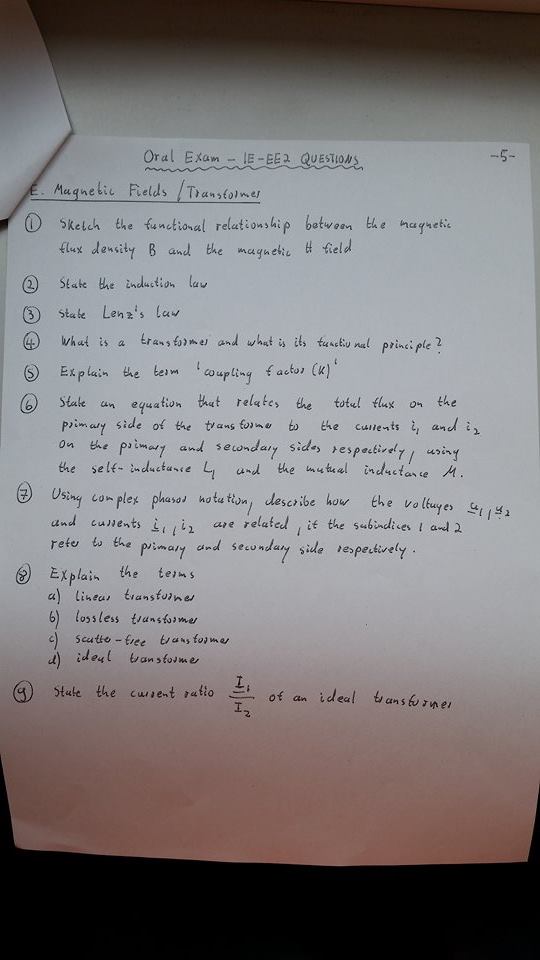 Oral Exam – IE-EE2 QUESTIONS
-5-
E. Magnetic Fields / Transformer
① Sketch the functional relationship between the magnetic
flux density B and the magnetic H field
② State the induction law
③ State Lenz's law
④ What is a transformer and what is its functional principle?
⑤ Explain the term 'coupling factor (K)'
⑥ State an equation that relates the total flux on the
primary side of the transformer to the currents i₁ and i₂
on the primary and secondary sides respectively, using
the self-inductance L₁ and the mutual inductance M.
⑦ Using complex phasor notation, describe how the voltages u₁, u₂
and currents i₁, i₂ are related, if the subindices 1 and 2
refer to the primary and secondary side respectively.
⑧ Explain the terms
a) linear transformer
b) lossless transformer
c) scatter-free transformer
d) ideal transformer
⑨ State the current ratio I₁/I₂ of an ideal transformer